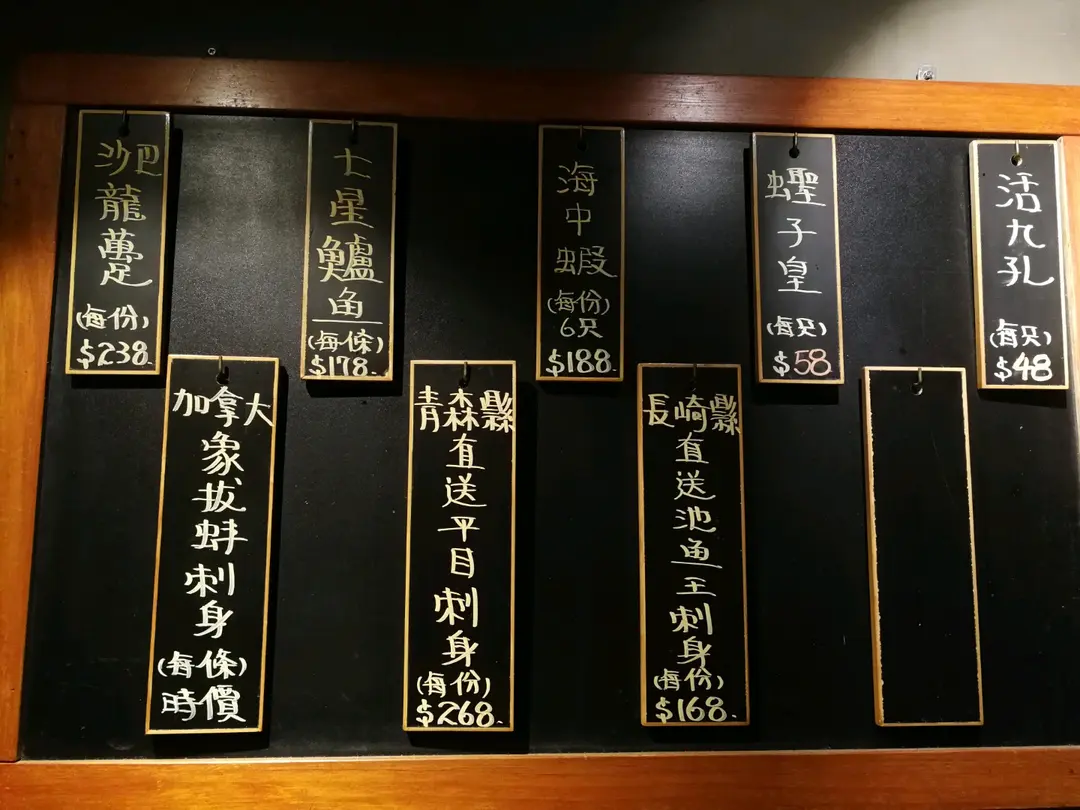 沙巴龍躉
(每份)
$238.
七星鱸魚
(每條)
$178.
海中蝦
(每份)
6只
$188
蟶子皇
(每只)
$58
活九孔
(每只)
$48
加拿大象拔蚌刺身
(每條)
時價
青森縣直送平目刺身
(每份)
$268.
長崎縣直送池魚王刺身
(每份)
$168.